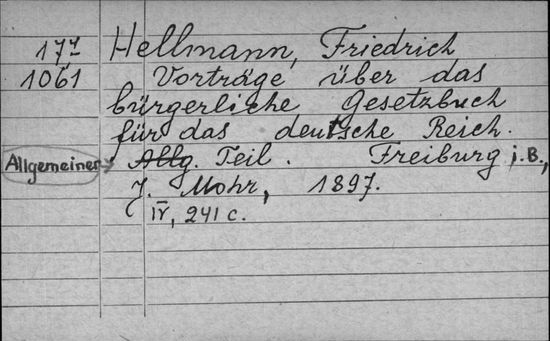 177 Hellmann, Friedrich
1061 Vorträge über das
bürgerliche Gesetzbuch
für das deutsche Reich.
Allgemeiner Allg. Teil. Freiburg i.B.,
J. Mohr, 1897.
IV, 241 c.